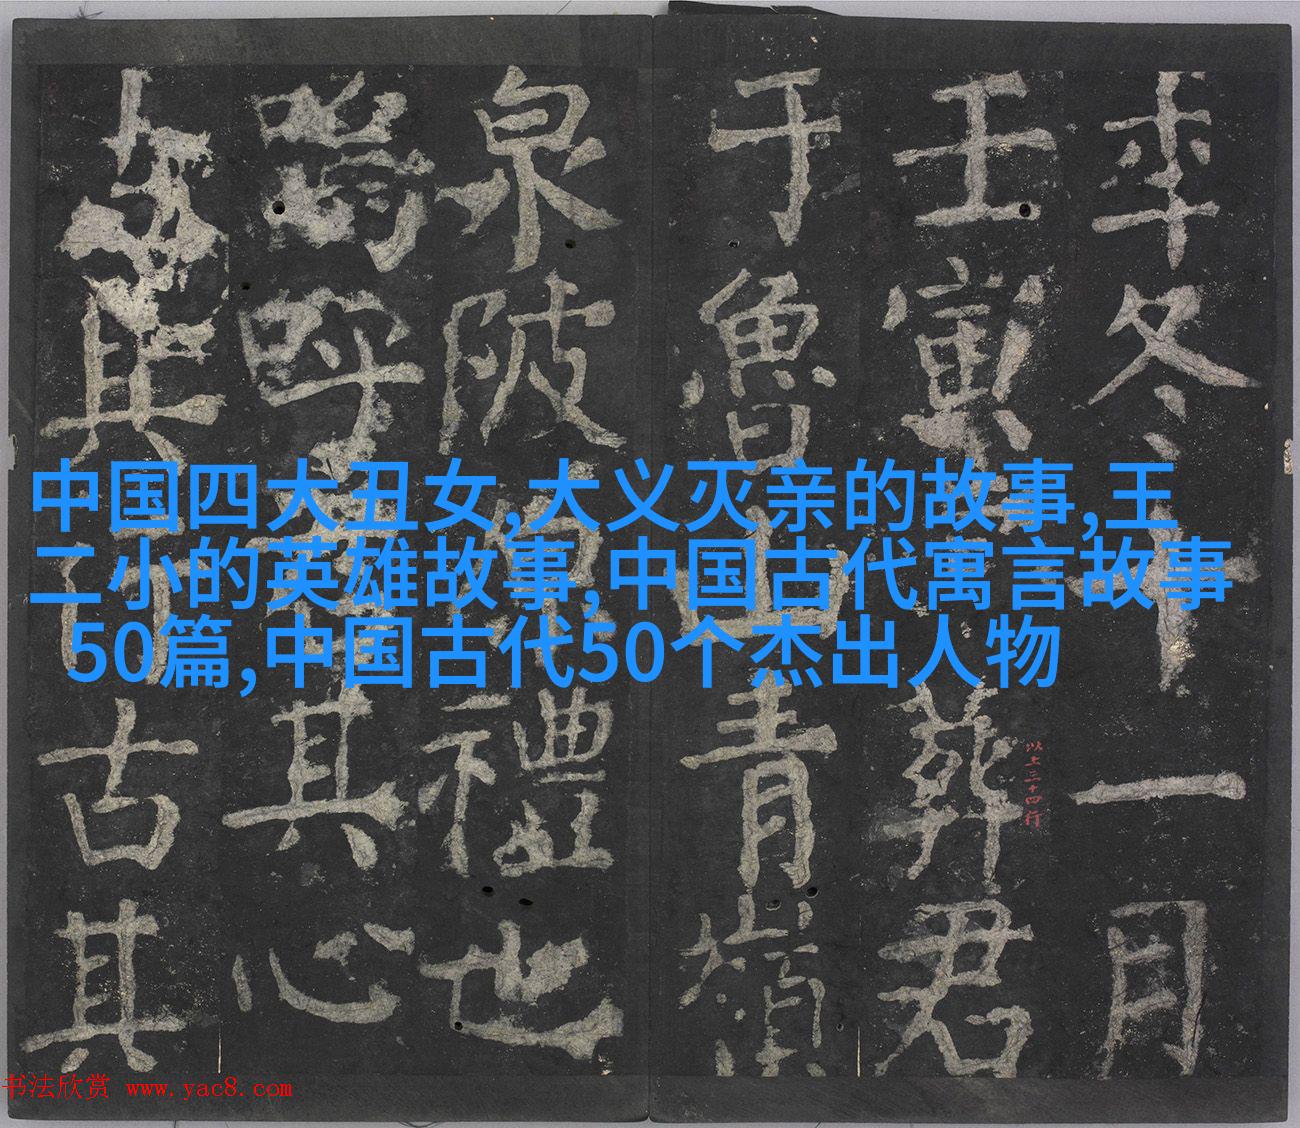 中国四大丑女,大义灭亲的故事,王
二小的英雄故事,中国古代寓言故事
50篇,中国古代50个杰出人物
年冬十一月
壬寅葬君
于魯山青嶺
泉陂原禮也
嗚呼其心
其行古其
以上三十四行
书法欣赏 www.yac8.com